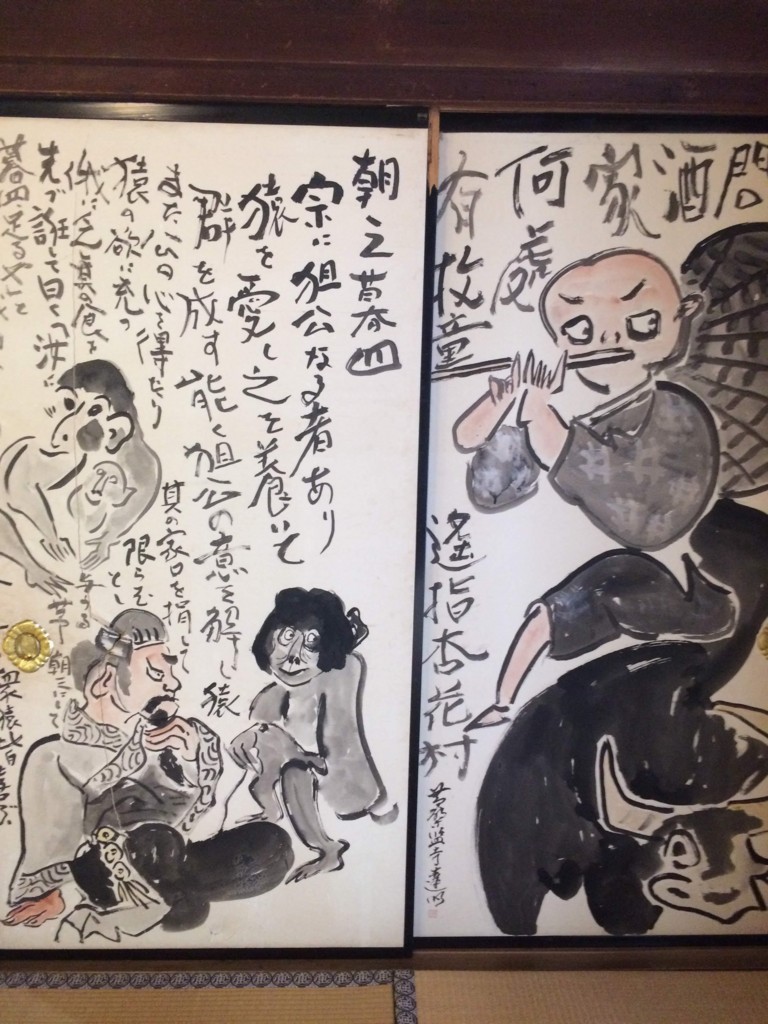 問
酒
家
何處
有牧童
遙指杏花村
朝三暮四
宗に狙公なる者あり
猿を愛し之を養いて
群を成す能く狙公の意を解し猿
また公の心を得たり
其の家口を損して
猿の欲に充つ
俄に乏其の食を
限らむとし
先づ誑して曰く「汝に
与うる
茅朝三にして
暮四足るや」と
衆猿皆